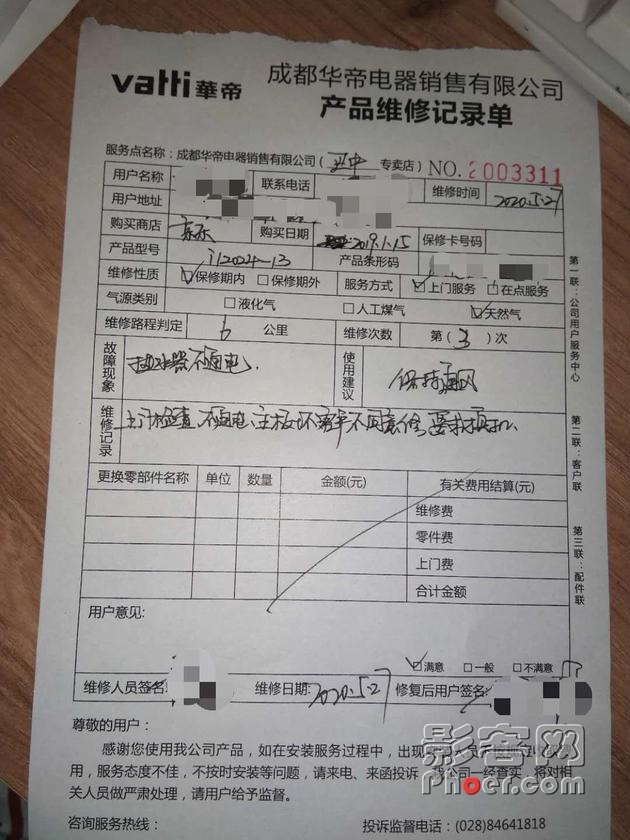 vatti 華帝
成都华帝电器销售有限公司
产品维修记录单
服务点名称：成都华帝电器销售有限公司( 专卖店) NO.2003311
用户名称 联系电话 维修时间 2020.5.27
用户地址
购买商店 京东 购买日期 2019.1.15 保修卡号码
产品型号 i12024-13 产品条形码
维修性质 ☑保修期内 □保修期外 服务方式 ☑上门服务 □在点服务
气源类别 □液化气 □人工煤气 ☑天然气
维修路程判定 6 公里 维修次数 第(3)次
故障现象 热水器不通电. 使用建议 保持通风
维修记录 上门检查,不通电,主板坏,客户不同意修,要求换机.
更换零部件名称 单位 数量 金额(元) 有关费用结算(元)
维修费
零件费
上门费
合计金额
用户意见:
☑满意 □一般 □不满意
维修人员签名: 维修日期: 2020.5.27 修复后用户签名:
尊敬的用户：
感谢您使用我公司产品，如在安装服务过程中，出现
用，服务态度不佳，不按时安装等问题，请来电、来函投诉，我公司一经查实，将对相
关人员做严肃处理，请用户给予监督。
咨询服务热线： 投诉监督电话：(028)84641818
第一联：公司用户服务中心
第二联：客户联
第三联：配件联
影客网
Phoer.com